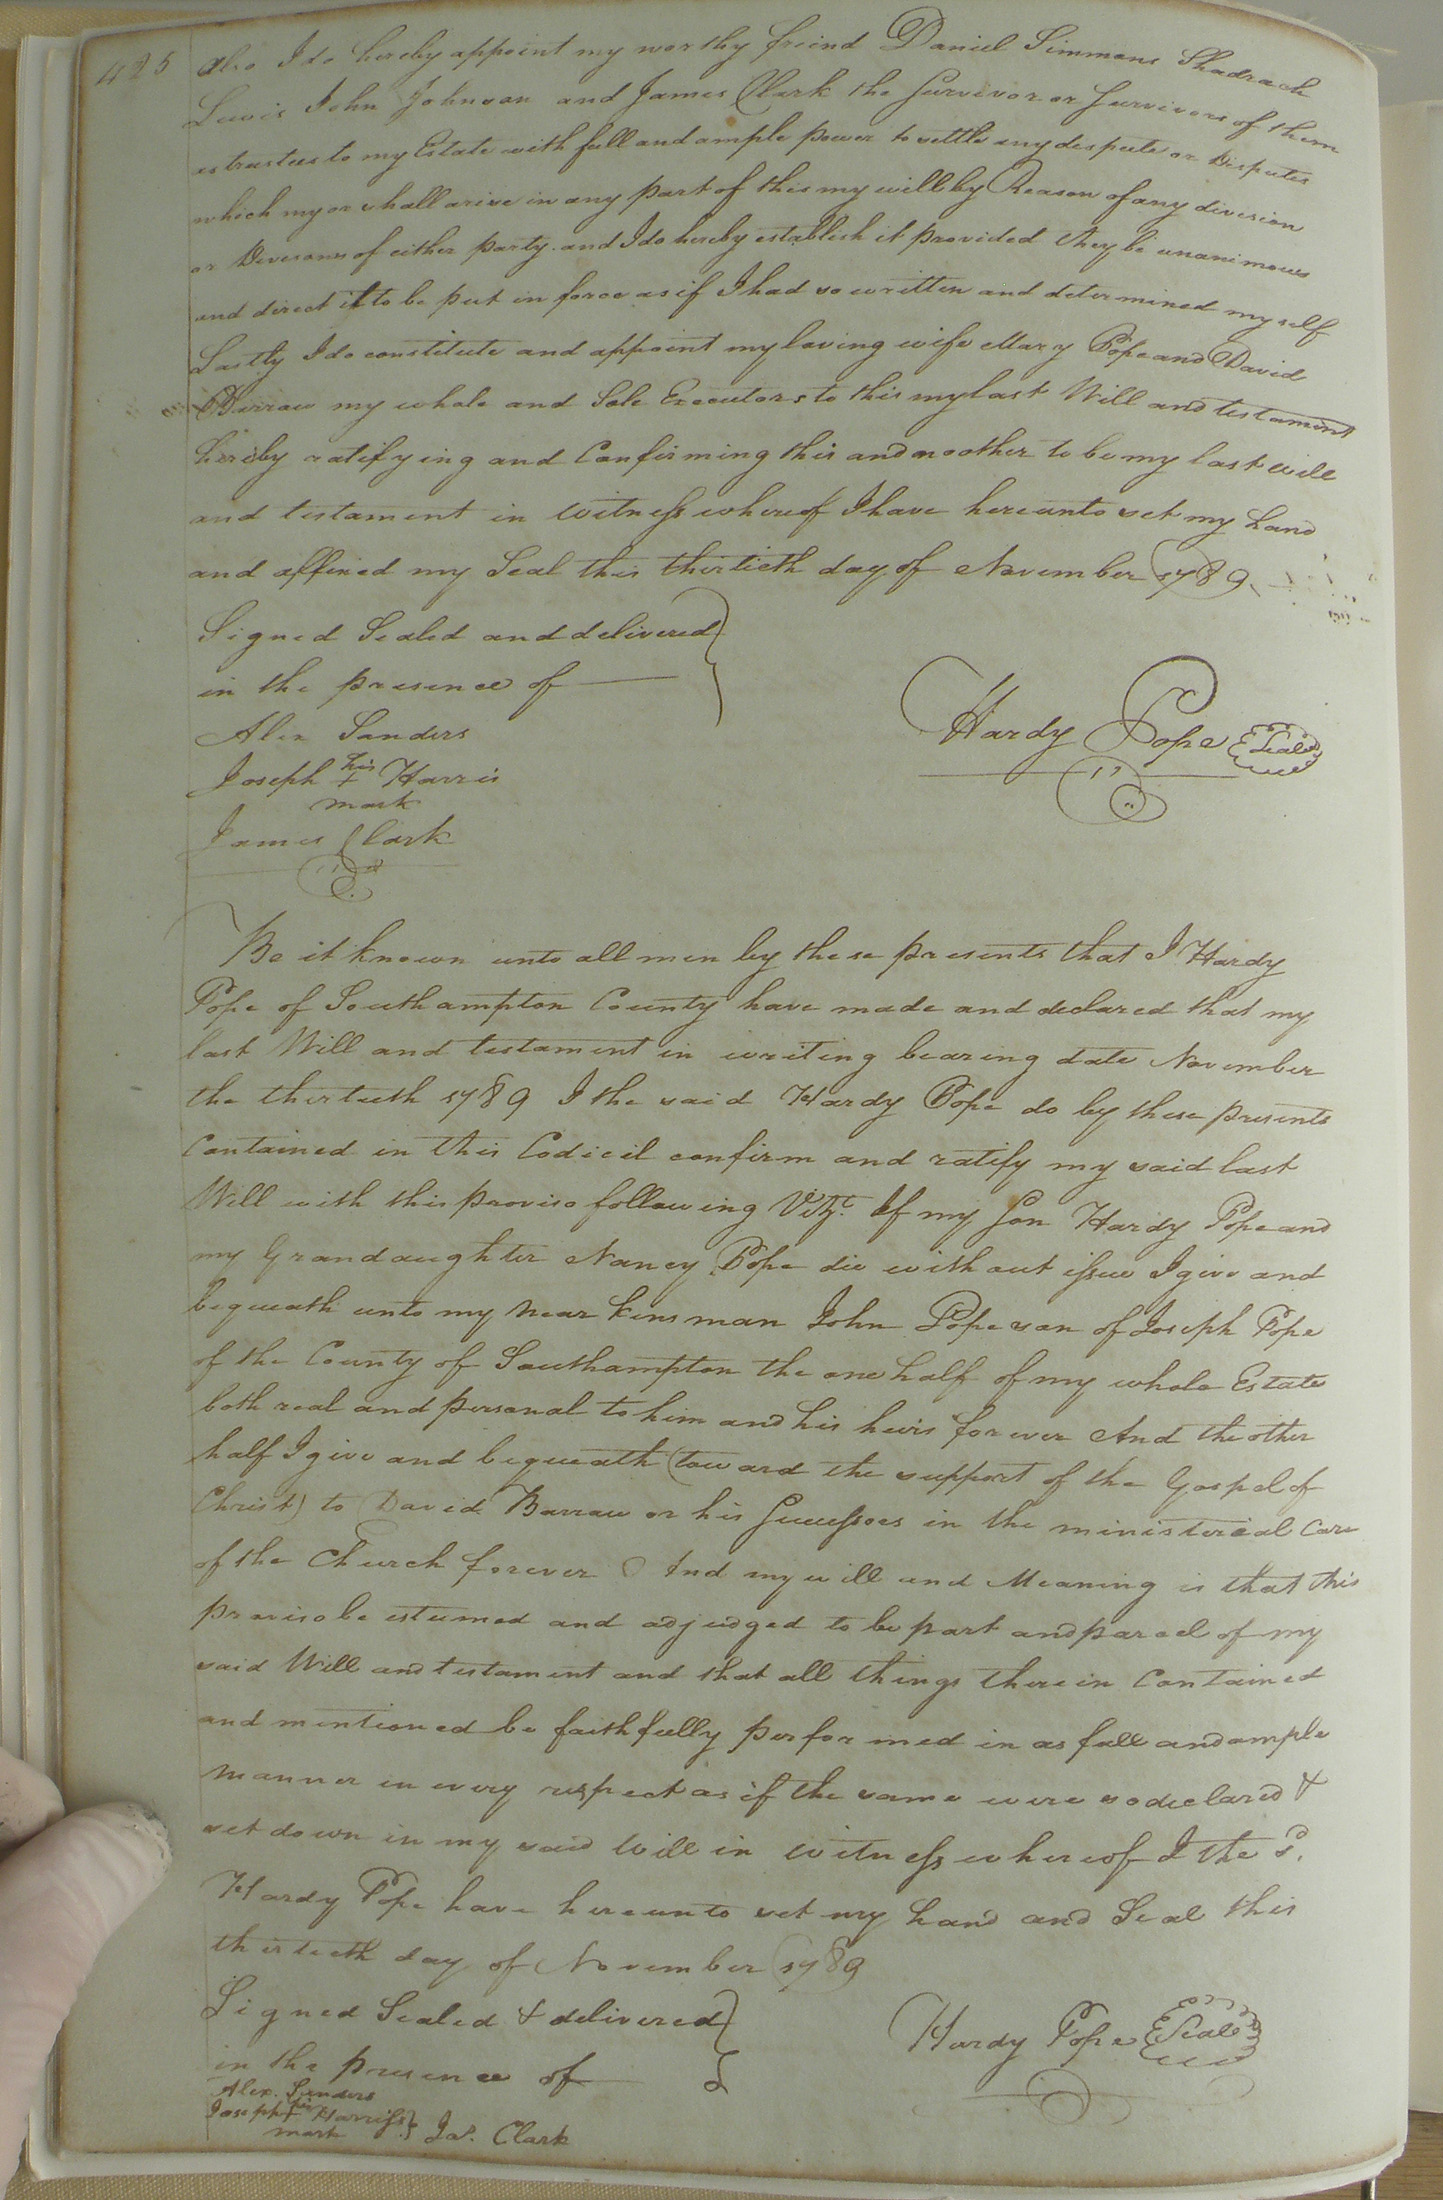 425
Also I do hereby appoint my worthy freind Daniel Simmons Shadrach
Lewis John Johnson and James Clark the Survivor or Survivors of them
as trustees to my Estate with full and ample power to settle any despute or Disputes
which my or shall arise in any part of this my will by Reason of any division
or Divisions of either party and I do hereby establish it provided they be unanimous
and direct it to be put in force as if I had so written and determined my self
Lastly I do constitute and appoint my loving wife Mary Pope and David
Barrow my whole and Sole Executors to this my last Will and testament
hereby ratifying and Confirming this and no other to be my last will
and testament in witness whereof I have hereunto set my hand
and affixed my Seal this thirtieth day of November 1789.
Signed Sealed and delivered
in the presence of
Alex Sanders
Joseph his + Harris
mark
James Clark
Hardy Pope Seal
Be it known unto all men by these presents that I Hardy
Pope of Southampton County have made and declared that my
last Will and testament in writing bearing date November
the thirtieth 1789 I the said Hardy Pope do by these presents
Contained in this Codicil confirm and ratify my said last
Will with this proviso following Vizt. If my Son Hardy Pope and
my Grandaughter Nancy Pope die without issue I give and
bequeath unto my near kinsman John Pope son of Joseph Pope
of the County of Southampton the one half of my whole Estate
both real and personal to him and his heirs forever And the other
half I give and bequeath (toward the support of the Gospel of
Christ) to David Barrow or his Successors in the ministerial Care
of the Church forever And my will and Meaning is that this
proviso be esteemed and adjudged to be part and parcel of my
said Will and testament and that all things therein Contained
and mentioned be faithfully performed in as full and ample
manner in every respect as if the same were so declared &
set down in my said Will in witness whereof I the sd.
Hardy Pope have hereunto set my hand and Seal this
thirtieth day of November 1789
Signed Sealed & delivered
in the presence of
Alex. Sanders
Joseph his + Harriss
mark
Jas. Clark
Hardy Pope Seal